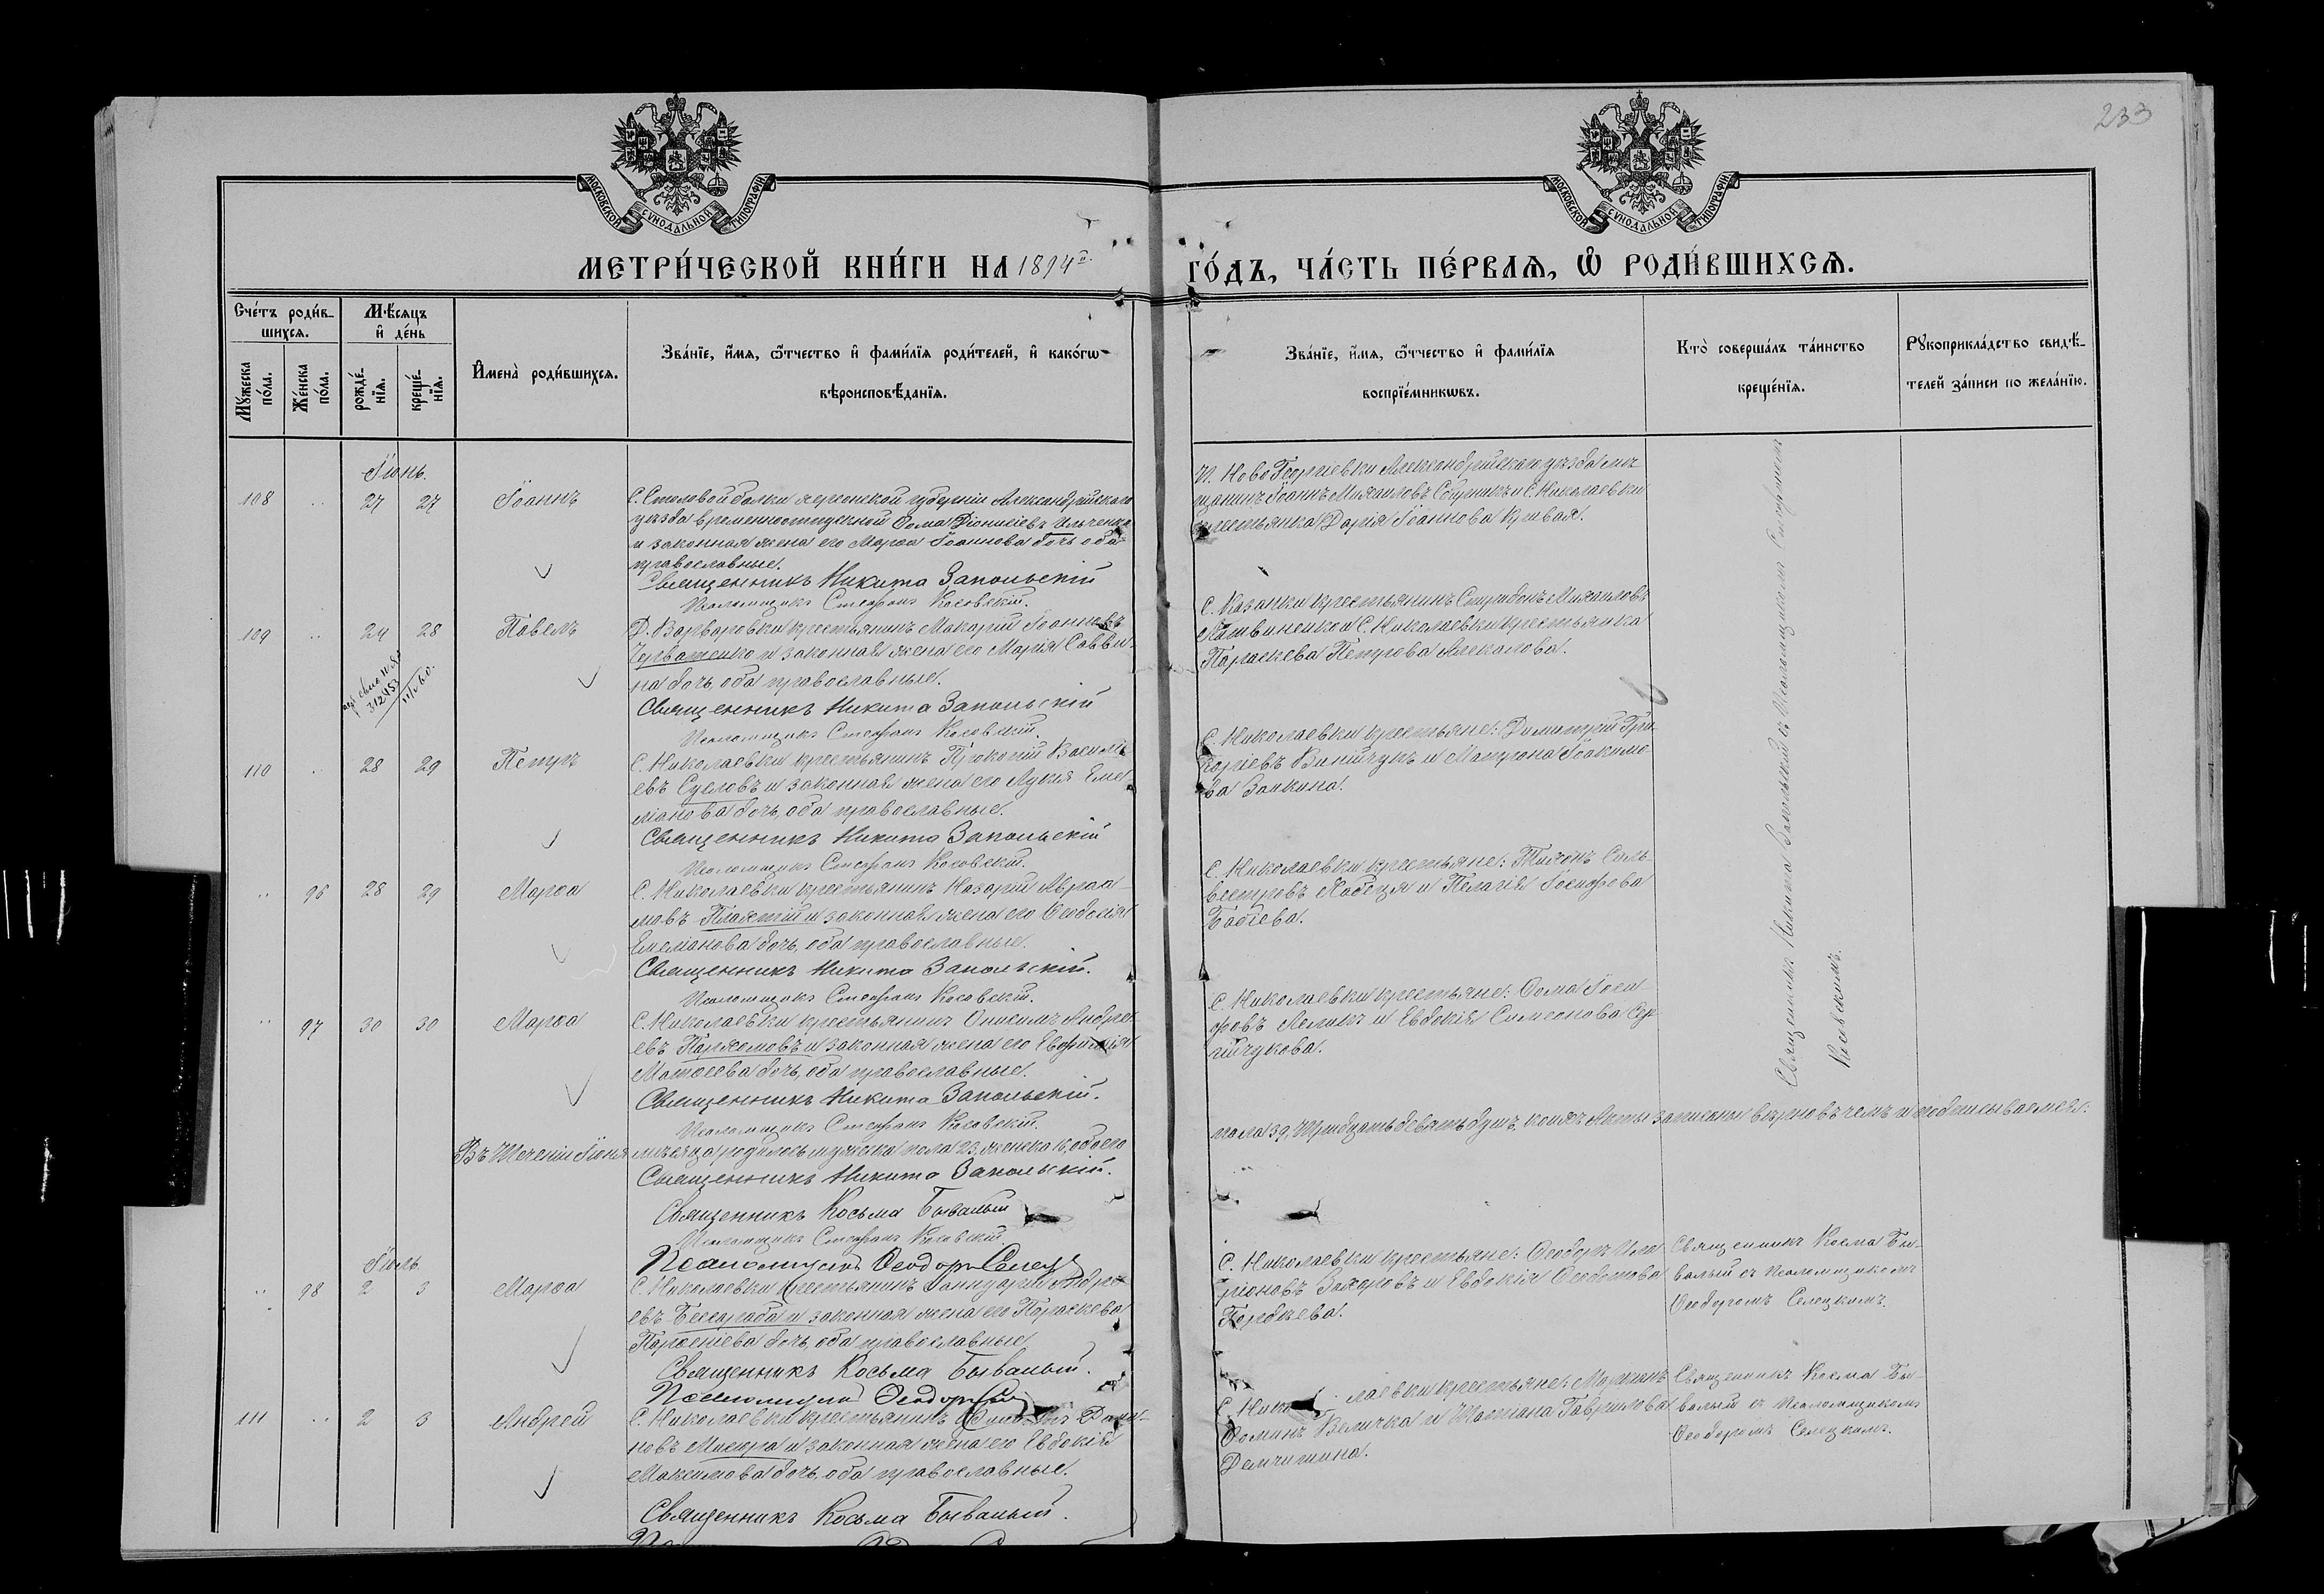 233
МОСКОВСКОЙ СѴНОДАЛЬНОЙ ТИПОГРАФІИ
МОСКОВСКОЙ СѴНОДАЛЬНОЙ ТИПОГРАФІИ
МЕТРИ́ЧЕСКОЙ КНИ́ГИ НА 1894 ГО́ДЪ, ЧА́СТЬ ПЕ́РВАѦ, Ѡ РОДИ́ВШИХСѦ.
Сче́тъ роди́в-
шихсѧ.
Мꙋ́жеска
по́ла.
Же́нска
по́ла.
Мѣ́сяцъ
и҆ де́нь
рожде́-
нїѧ.
креще́-
нїѧ.
И҆мена̀ роди́вшихсѧ.
Зва́нїе, и҆́мѧ, ѻ҆́тчество и҆ фами́лїѧ роди́телей, и҆ како́гѡ
вѣроисповѣ́данїѧ.
Зва́нїе, и҆́мѧ, ѻ҆́тчество и҆ фами́лїѧ
воспрїе́мникѡвъ.
Кто̀ соверша́лъ та́инство
креще́нїѧ.
Рꙋкоприкла́дство свидѣ́-
телей за́писи по жела́нїю.
Іюнь.
108 .. 27 27 Іоаннъ
С. Стоговой балки херсонской губерніи Александрійскаго
уѣзда временноотпускной Ѳома Діонисіевъ Ильченко
и законная жена его Марѳа Іоаннова дочь оба
православные.
Священникъ Никита Запольскій
Псаломщикъ Стефанъ Косовскій.
Новогеоргіевки Александрійскаго уѣзда мѣ-
щанинъ Іоаннъ Михаиловъ и С. Николаевки
крестьянка Дарія Іоаннова Кривая.
109 .. 24 28 Павелъ
Д. Варваровки крестьянинъ Макарій Іоанновъ
Черваненко и законная жена его Марія Савви-
на дочь, оба православные.
Священникъ Никита Запольскій
Псаломщикъ Стефанъ Косовскій.
С. Казанки крестьянинъ Спиридонъ Михаиловъ
Литвиненко и С. Николаевки крестьянка
Параскева Петрова
110 .. 28 29 Петръ
С. Николаевки крестьянинъ Прокопій Василь-
евъ Сусловъ и законная жена его Лукія Еме-
ліанова дочь, оба православные.
Священникъ Никита Запольскій
Псаломщикъ Стефанъ Косовскій.
С. Николаевки крестьяне: Димитрій Гри-
горіевъ Винійчукъ и Матрона Іоакимо-
ва Заикина.
.. 96 28 29 Марѳа
С. Николаевки крестьянинъ Назарій Авраа-
мовъ Плахотій и законная жена его Ѳеодосія
Емеліанова дочь, оба православные.
Священникъ Никита Запольскій.
Псаломщикъ Стефанъ Косовскій.
С. Николаевки крестьяне: Тихонъ Силь-
вестровъ и Пелагія Іосифова
Бабіева.
.. 97 30 30 Марѳа
С. Николаевки крестьянинъ Онисимъ Андре-
евъ Пархомовъ и законная жена его Евфимія
Матѳеева дочь, оба православные.
Священникъ Никита Запольскій.
Псаломщикъ Стефанъ Косовскій.
С. Николаевки крестьяне: Ѳома Іоси-
фовъ и Евдокія Симеонова Сер-
гійчукова.
Священникъ Никита Запольскій съ Псаломщикомъ Стефаномъ
Косовскимъ.
Въ теченіи Іюня мѣсяца родилось мужска пола 23, женска 16, обоего
пола 39, тридцать девять душъ, коихъ Акты записаны вѣрно въ чемъ и подписываемся:
Священникъ Никита Запольскій.
Священникъ Косьма Бывалый
Псаломщикъ Стефанъ Косовскій.
Псаломщикъ Ѳеодоръ Селецкій
Іюль.
.. 98 2 3 Марѳа
С. Николаевки крестьянинъ Іаннуарій Андре-
евъ Бессараба и законная жена его Параскева
Парѳеніева дочь, оба православные.
Священникъ Косьма Бывалый.
Псаломщикъ Ѳеодоръ
С. Николаевки крестьяне: Ѳеодоръ Ила-
ріоновъ Захаровъ и Евдокія Ѳеодотова
Гордіева.
Священникъ Косма Бы-
валый съ Псаломщикомъ
Ѳеодоромъ Селецкимъ.
111 .. 2 3 Андрей
С. Николаевки крестьянинъ
новъ Мисюра и законная жена его Евдокія
Максимова дочь, оба православные.
Священникъ Косьма Бывалый.
С. Николаевки крестьяне: Мартинъ
Ѳоминъ Величка и Татіана Гаврилова
Демчишина.
Священникъ Косма Бы-
валый съ Псаломщикомъ
Ѳеодоромъ Селецкимъ.